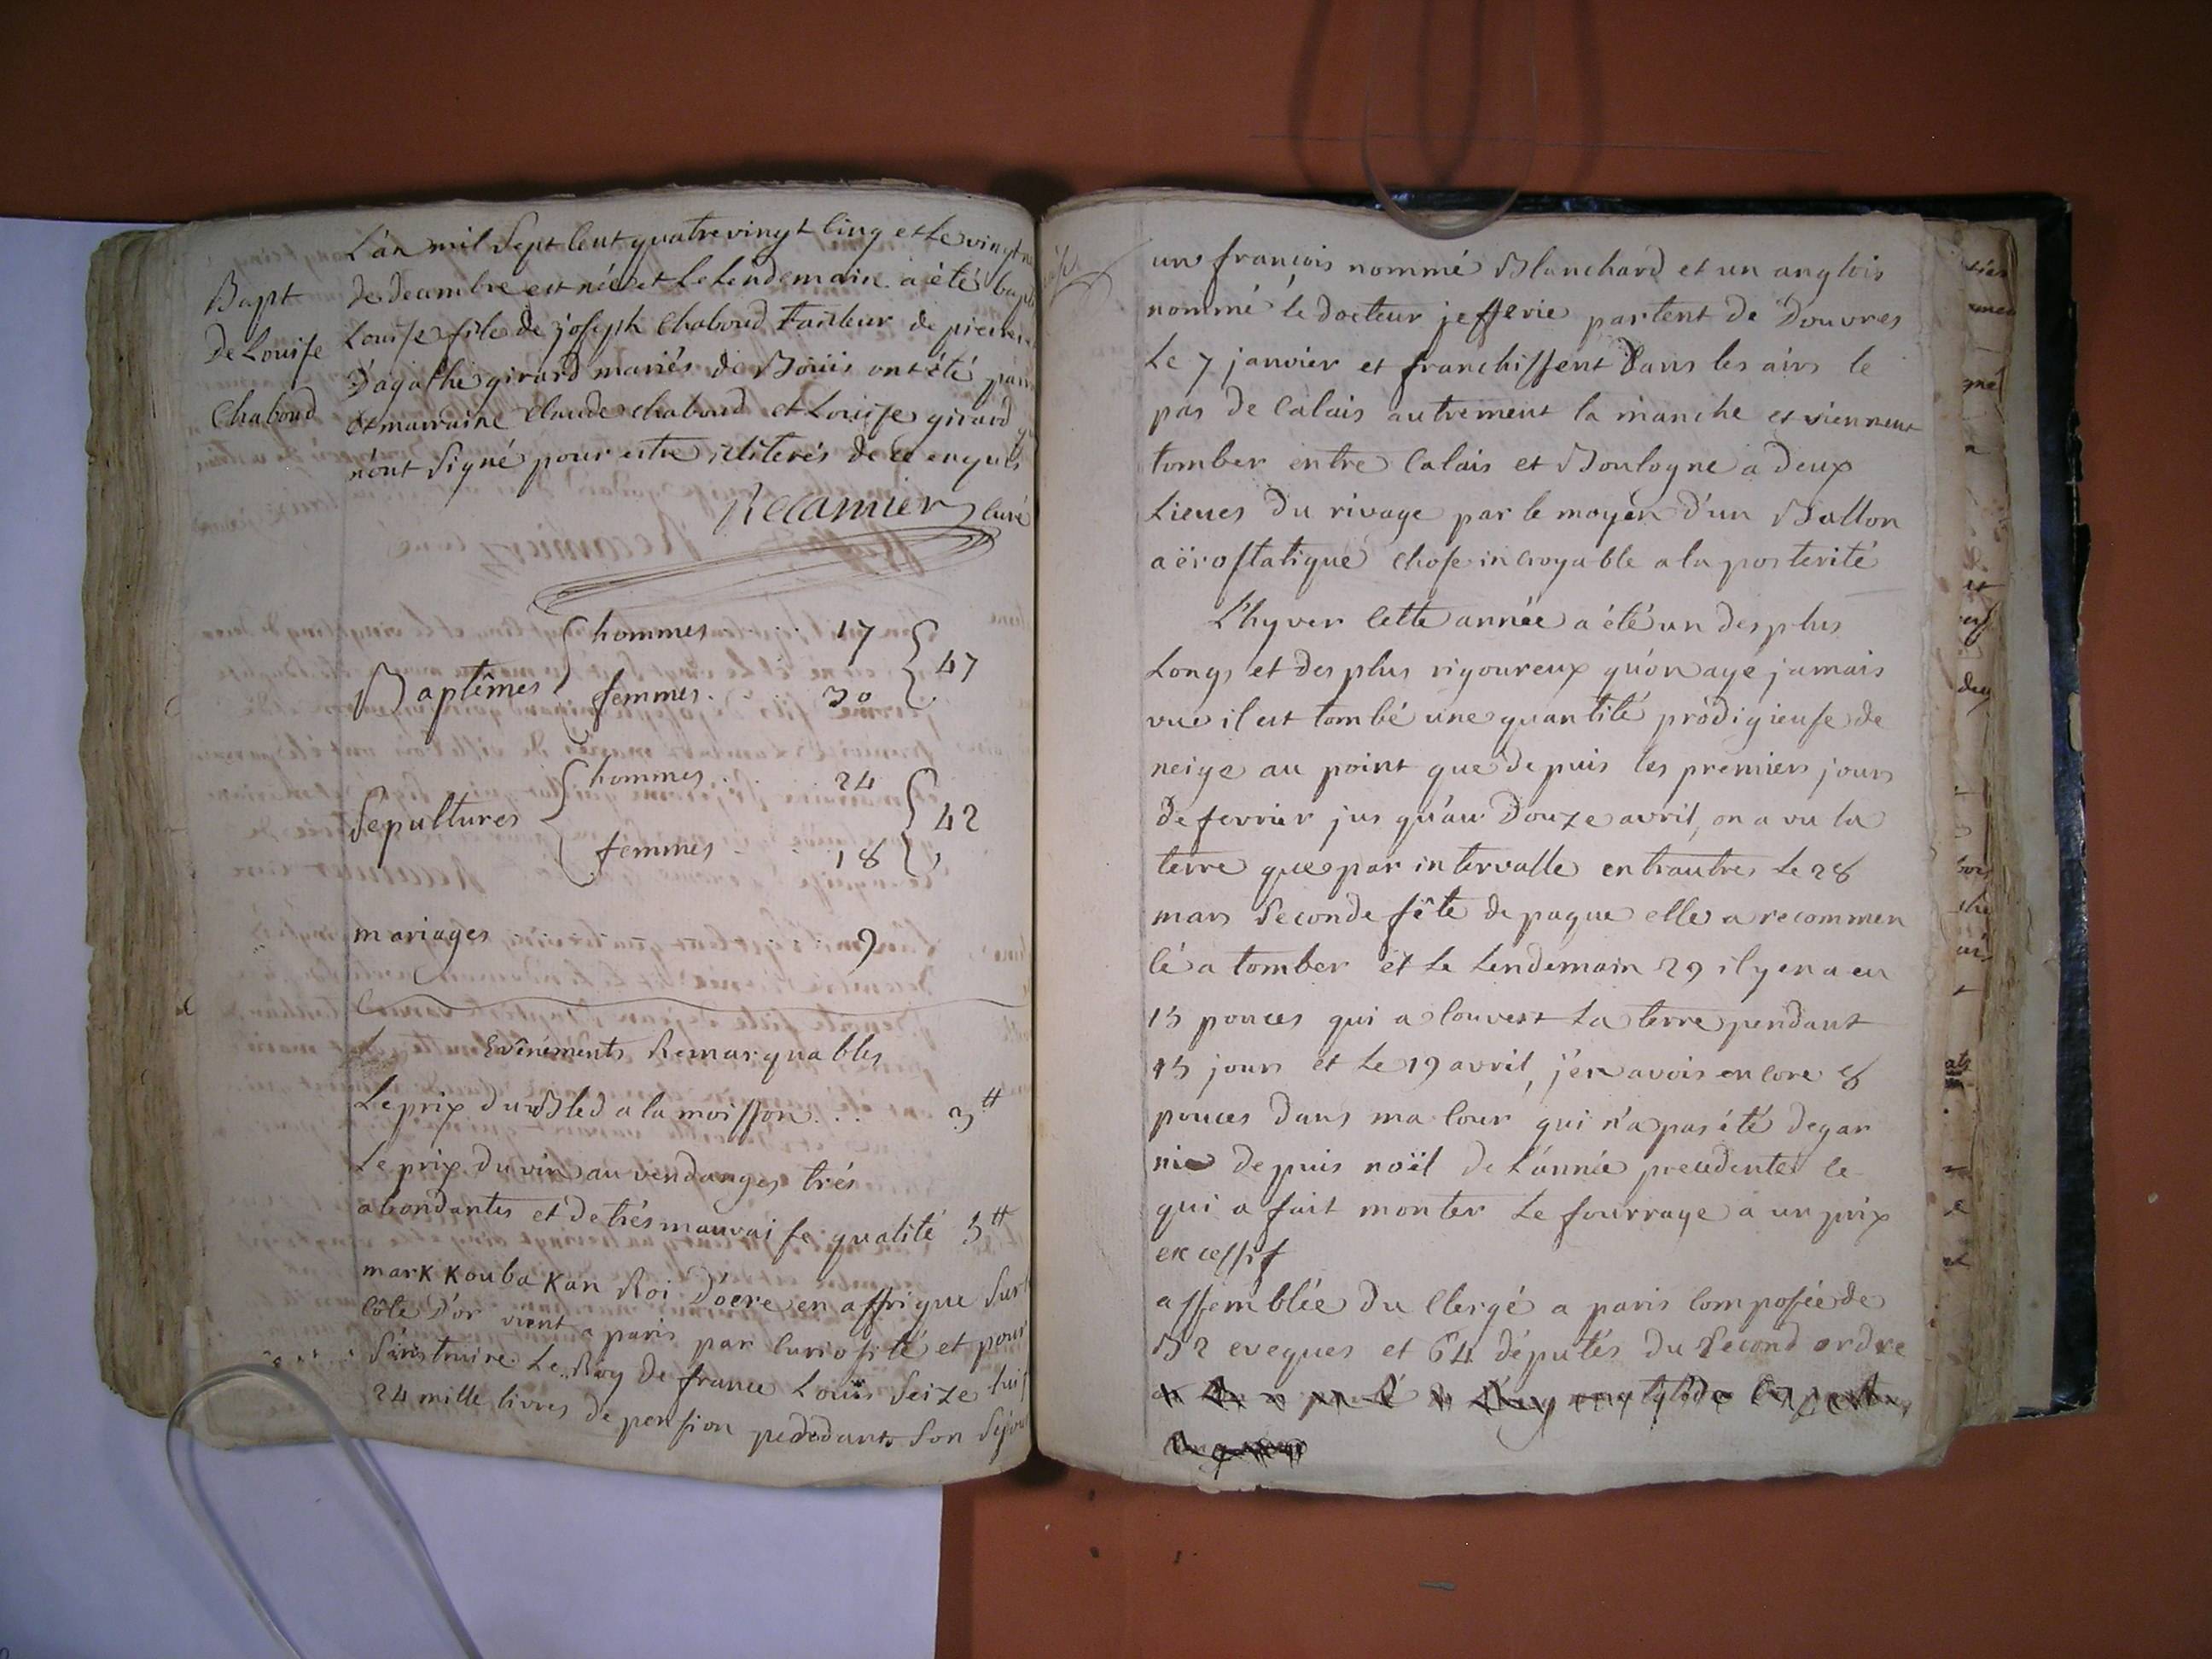 L'an mil Sept Cent quatre vingt Cinq et le vingt
Bapt
De Louise
Chaboud
de decembre est née et le lendemain a été bap
Louise fille de joseph Chaboud tailleur de pierre
D'agathe girard mariés de Boüis ont été par
et marraine Claude chaboud et Louise girard q
n'ont Signé pour estre illiterés de ce enquis
Recamier Curé
Baptêmes
hommes . . . 17
femmes . . . 30
47
Sepultures
hommes . . . 24
femmes . . . 18
42
mariages . . . . . . 9
Evénements Remarquables
Le prix du Bled a la moisson . . . 3 ₶
Le prix du vin au vendanges trés
abondantes et de trés mauvaise qualité 5 ₶
mark Kouba Kan Roi D'oere en affrique Sur
Côte D'or vient a paris par Curiosité et pour
S'instruire Le Roy de france Louis Seize lui
24 mille livres de pension pendant Son Sejour
un francois nommé Blanchard et un anglois
nommé le docteur jefferie partent de Douvres
Le 7 janvier et franchissent Dans les airs le
pas de Calais autrement la manche et viennent
tomber entre Calais et Boulogne a deux
Lieues du rivage par le moyen d'un Ballon
aërostatique Chose incroyable a la posterité
L'hyver Cette année a été un des plus
Longs et des plus rigoureux qu'on aye jamais
vue il est tombé une quantité prodigieuse de
neige au point que depuis les premiers jours
de fevrier jus qu'au Douze avril, on a vu la
terre que par intervalle entrautres Le 28
mars Seconde fête de paque elle a recommen
cé a tomber et Le Lendemain 29 il y en a eu
15 pouces qui a Couvert La terre pendant
15 jours et Le 19 avril, j'en avois encore 8
pouces dans ma Cour qui n'a pas été degar
nie depuis noël de L'année precedente Ce
qui a fait monter Le fourrage a un prix
excessif
assemblée du Clergé a paris Composée de
32 eveques et 64 députés du Second ordre